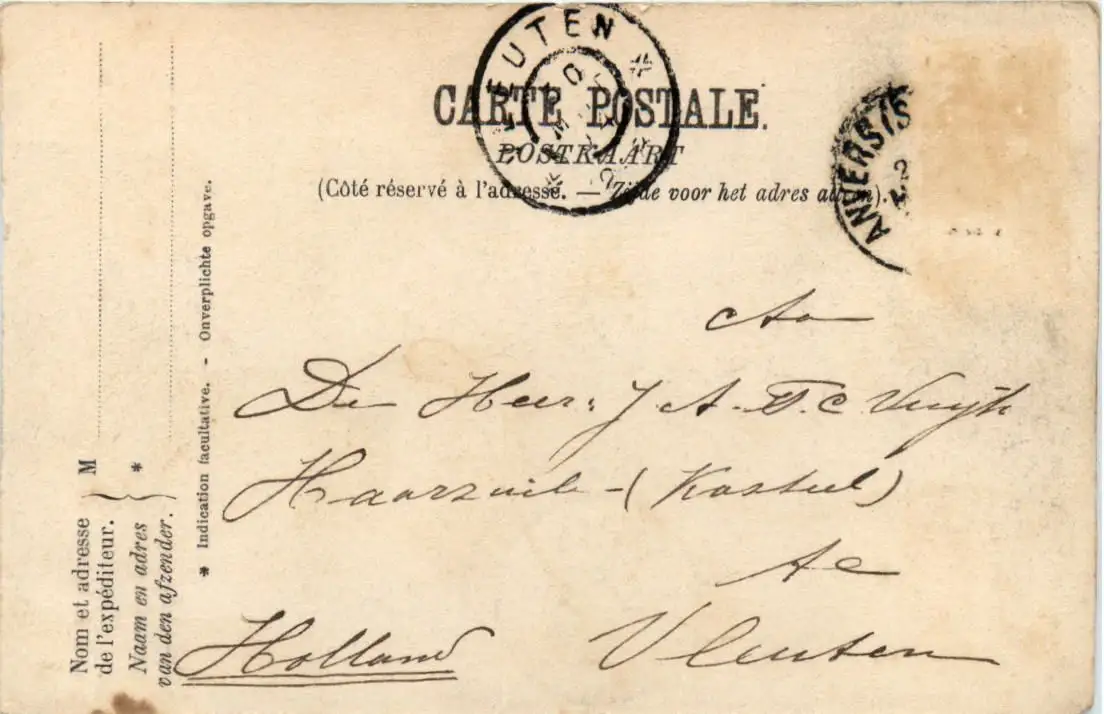 VLEUTEN
CARTE POSTALE.
POSTKAART
(Côté réservé à l'adresse. — Zijde voor het adres alleen).
ANVERS
Nom et adresse
de l'expéditeur.
Naam en adres
van den afzender.
M
*
* Indication facultative. - Onverplichte opgave.
Aan
Den Heer: J A. F. C
Haarzuilen - (Kasteel)
te
Vleuten
Holland